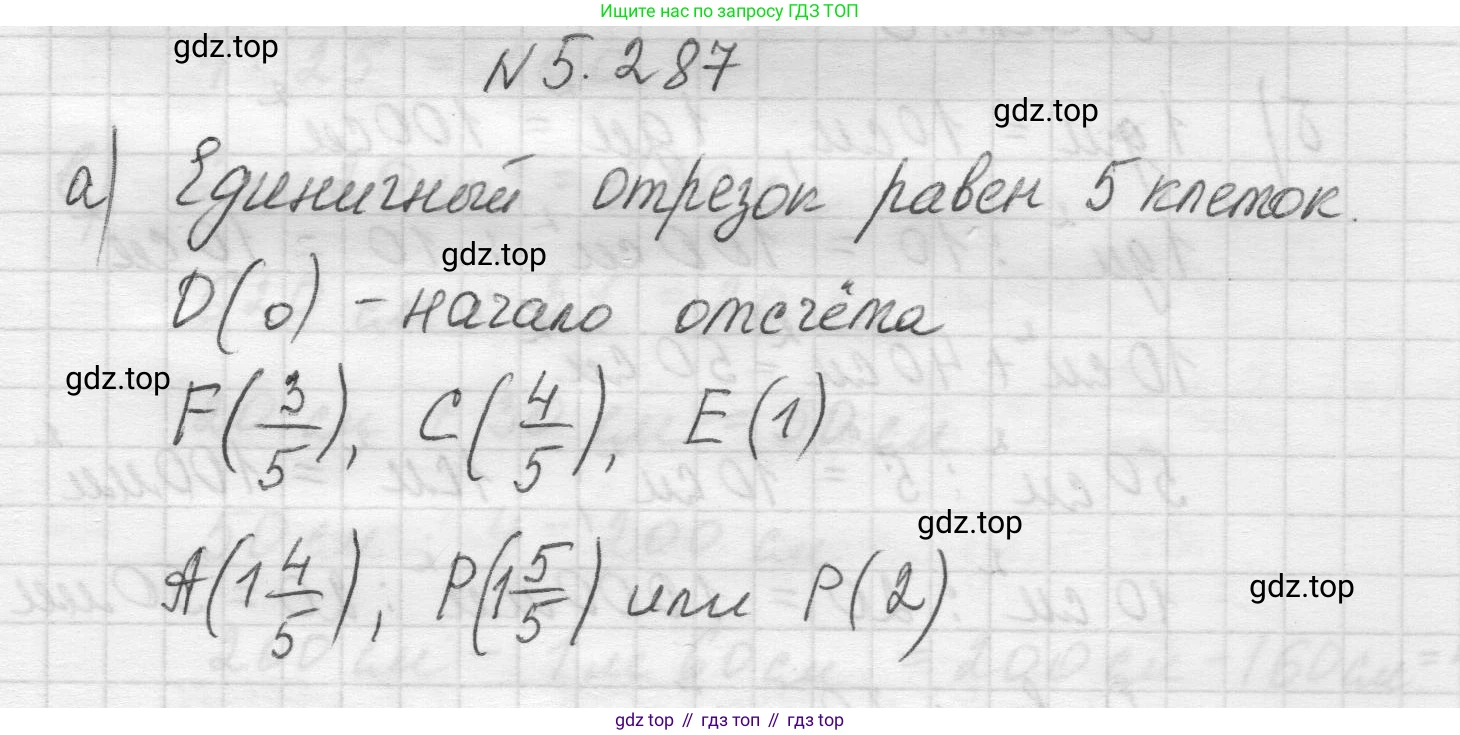 Ищите нас по запросу ГДЗ ТОП
gdz.top
N 5.287
gdz.top
а) Единичный отрезок равен 5 клеток.
gdz.top
O(0) - начало отсчёта
gdz.top
F(3/5), C(4/5), E(1)
gdz.top
A(1 4/5), P(1 5/5) или P(2)
gdz.top
gdz top // гдз топ // гдз top